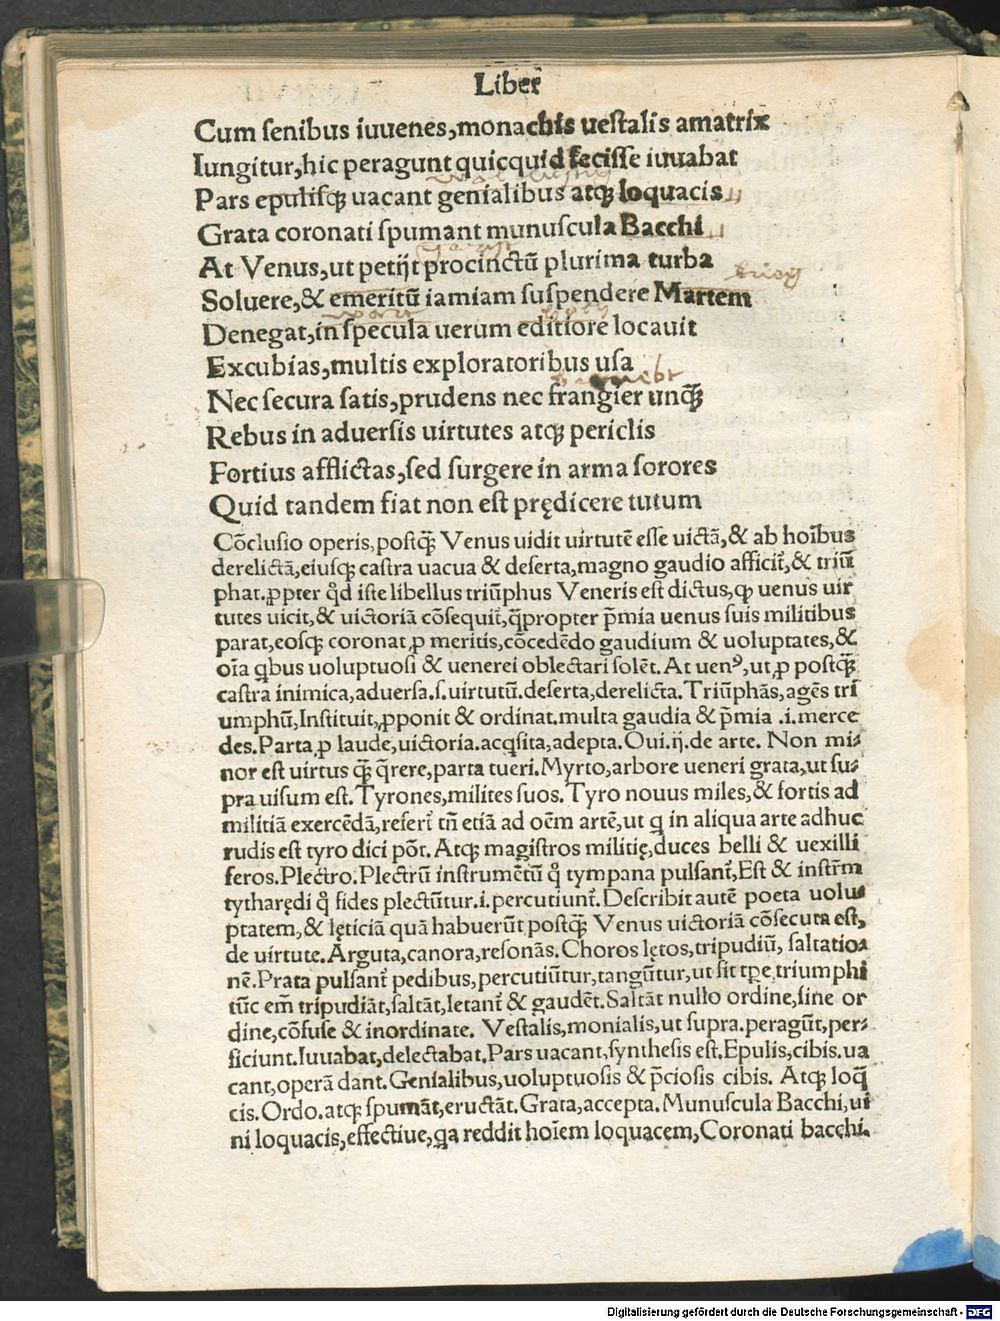 Liber
Cum senibus iuuenes,monachis uestalis amatrix
Iungitur,hic peragunt quicquid fecisse iuuabat
Pars epulisq; uacant genialibus atq; loquacis
Grata coronati spumant munuscula Bacchi
At Venus,ut petijt procinctū plurima turba
Soluere,& emeritū iamiam suspendere Martem
Denegat,in specula uerum editiore locauit
Excubias,multis exploratoribus usa
Nec secura satis,prudens nec frangier unq̃;
Rebus in aduersis uirtutes atq; periclis
Fortius afflictas,sed surgere in arma sorores
Quid tandem fiat non est prędicere tutum
Cōclusio operis,postq̃; Venus uidit uirtutē esse uictā,& ab hoībus
derelictā,eiusq; castra uacua & deserta,magno gaudio afficit᷑,& triū
phat.ꝓpter qd̓ iste libellus triūphus Veneris est dictus,ꝙ uenus uir
tutes uicit,& uictoriā cōsequit᷑,q̄propter p̄mia uenus suis militibus
parat,eosq; coronat ꝓ meritis,cōcedēdo gaudium & uoluptates,&
oīa qbus uoluptuosi & uenerei oblectari solēt.At uenꝰ,ut ꝓ postq̃;
castra inimica,aduersa.s.uirtutū.deserta,derelicta.Triūphās,agēs tri
umphū,Instituit,ꝓponit & ordinat.multa gaudia & p̄mia .i.merce
des.Parta ꝓ laude,uictoria.acqsita,adepta.Oui.ij.de arte. Non mi⸗
nor est uirtus q̃; q̄rere,parta tueri.Myrto,arbore ueneri grata,ut su⸗
pra uisum est.Tyrones,milites suos.Tyro nouus miles,& fortis ad
militiā exercēdā,refert᷑ tñ etiā ad oēm artē,ut q in aliqua arte adhuc
rudis est tyro dici pōt.Atq; magistros militię,duces belli & uexilli
feros.Plectro.Plectrū instrumētū q̊ tympana pulsant᷑,Est & instr̄m
cytharędi q̊ fides plectūtur.i.percutiunt᷑.Describit autē poeta uolu⸗
ptatem,& lęticiā quā habuerūt postq̃; Venus uictoriā cōsecuta est,
de uirtute.Arguta,canora,resonās.Choros lętos,tripudiū, saltatio⸗
nē.Prata pulsant᷑ pedibus,percutiūtur,tangūtur,ut sit tp̄e,triumphi
tūc em̄ tripudiāt,saltāt,letant᷑ & gaudēt.Saltāt nullo ordine,sine or
dine,cōfuse & inordinate. Vestalis,monialis,ut supra.peragūt,per⸗
ficiunt.Iuuabat,delectabat.Pars uacant,synthesis est.Epulis,cibis.ua
cant,operā dant.Genialibus,uoluptuosis & p̄ciosis cibis. Atq; loq̄
cis.Ordo.atq; spumāt,eructāt.Grata,accepta.Munuscula Bacchi,ui
ni loquacis,effectiue,qa reddit hoīem loquacem,Coronati bacchi.
Digitalisierung gefördert durch die Deutsche Forschungsgemeinschaft - DFG